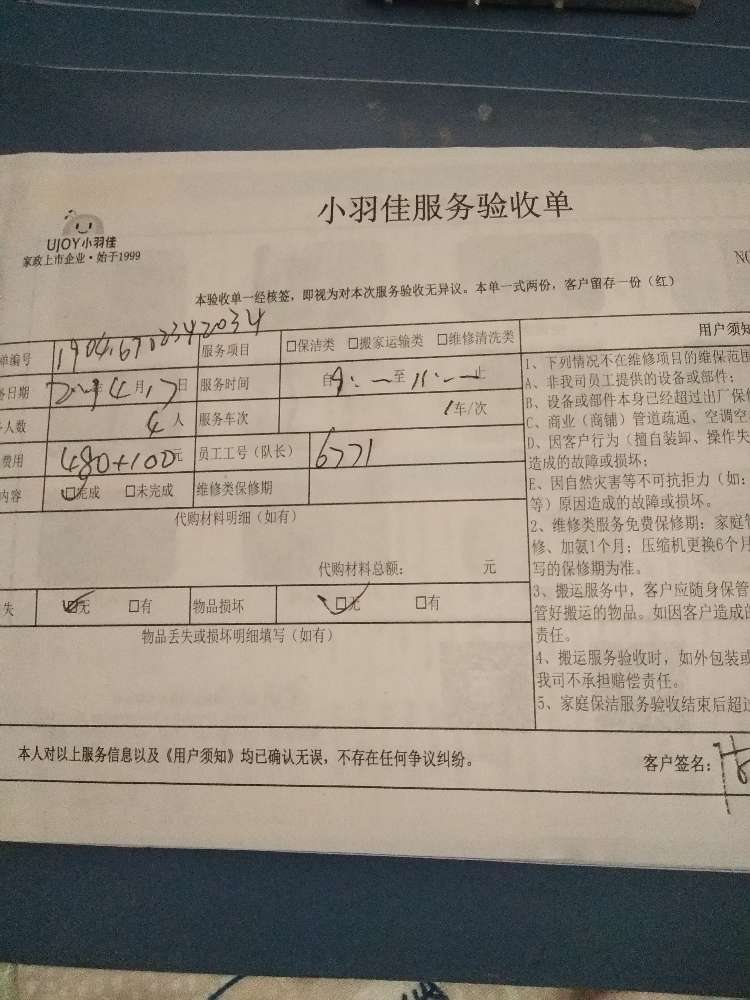 小羽佳服务验收单
UJOY小羽佳
家政上市企业·始于1999
NO
本验收单一经核签，即视为对本次服务验收无异议。本单一式两份，客户留存一份（红）
单编号 服务项目 □保洁类 □搬家运输类 □维修清洗类 用户须知
务日期 4月17日 服务时间 自9:一至11:一止
人数 4人 服务车次 1车/次
费用 480+100元 员工工号（队长） 6771
内容 □完成 □未完成 维修类保修期
代购材料明细（如有）
代购材料总额： 元
失 □无 □有 物品损坏 □无 □有
物品丢失或损坏明细填写（如有）
1、下列情况不在维修项目的维保范围
A、非我司员工提供的设备或部件；
B、设备或部件本身已经超过出厂保修
C、商业（商铺）管道疏通、空调空
D、因客户行为（擅自装卸、操作失
造成的故障或损坏；
E、因自然灾害等不可抗拒力（如：
等）原因造成的故障或损坏。
2、维修类服务免费保修期：家庭管
修、加氨1个月；压缩机更换6个月
写的保修期为准。
3、搬运服务中，客户应随身保管
管好搬运的物品。如因客户造成的
责任。
4、搬运服务验收时，如外包装或
我司不承担赔偿责任。
5、家庭保洁服务验收结束后超过
本人对以上服务信息以及《用户须知》均已确认无误，不存在任何争议纠纷。
客户签名：